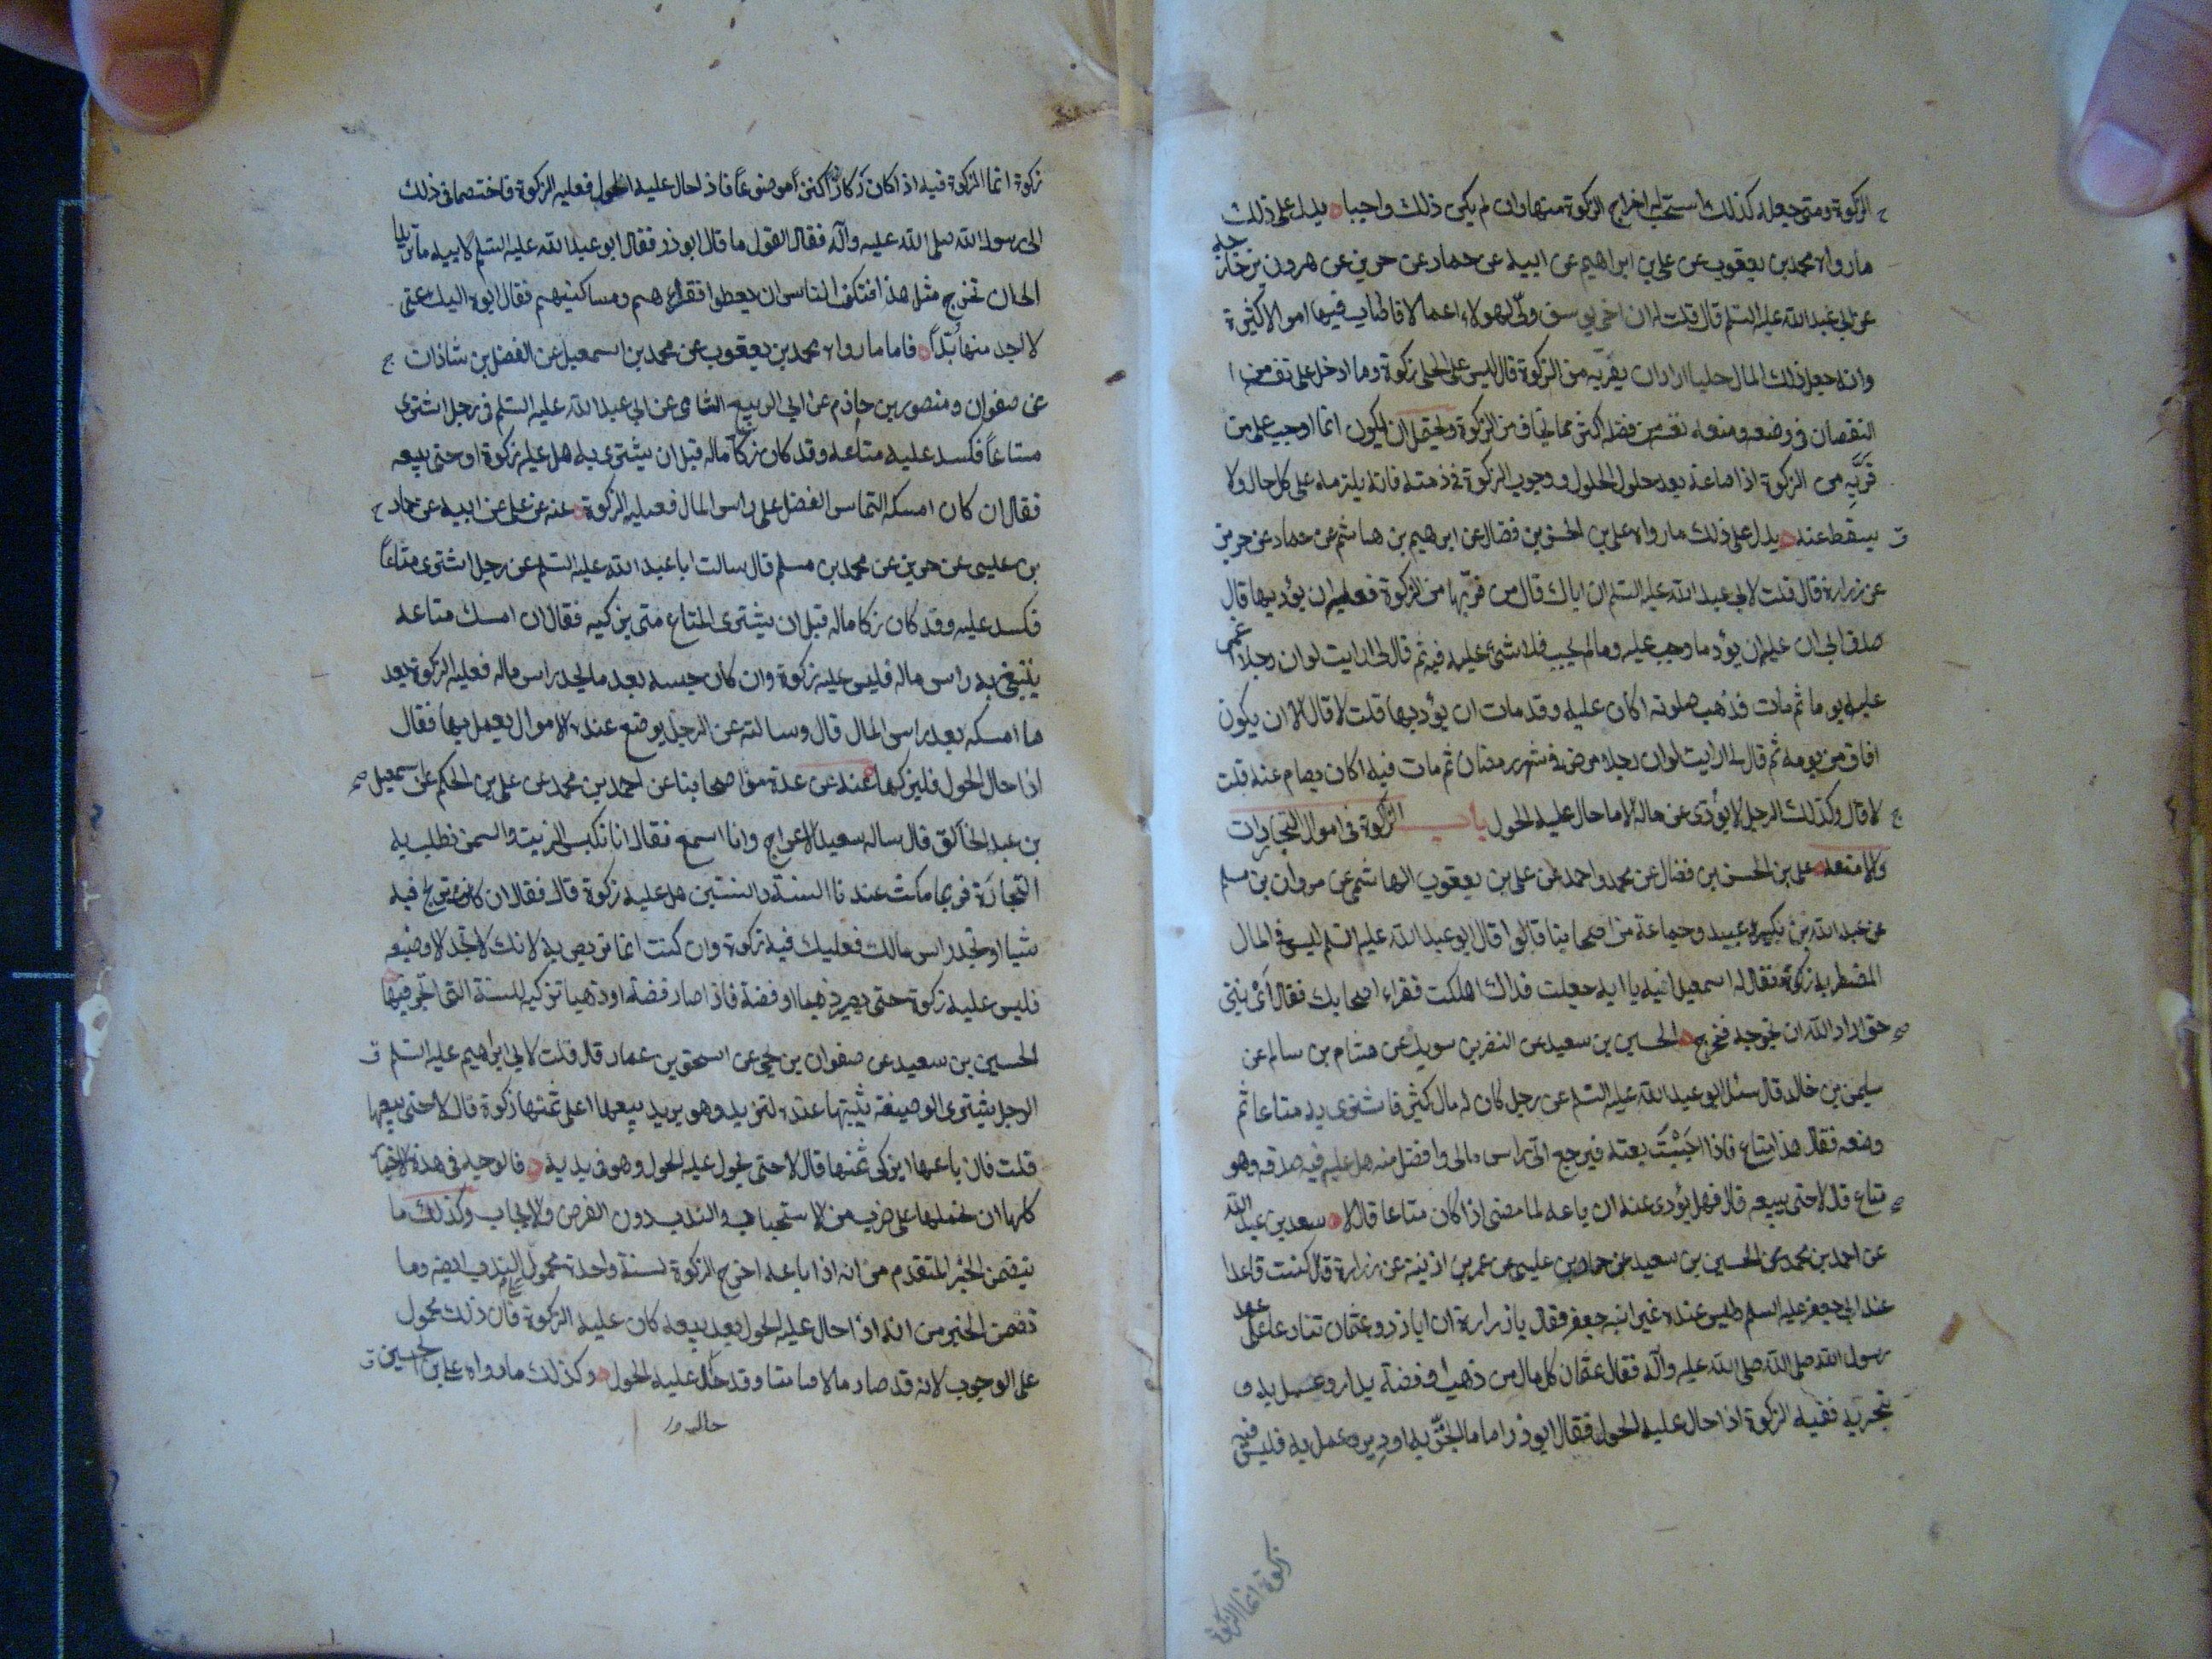 الزكوة ومتى جعله كذلك استحب له اخراج الزكوة منها وان لم يكن ذلك واجبا يدل على ذلك
ما رواه محمد بن يعقوب عن علي بن ابراهيم عن ابيه عن حماد عن حريز عن هرون بن خارجه
عن ابي عبد الله عليه السلم قال قلت له ان اخي يوسف ولي لهولاء اعمالا اصاب فيها اموالا كثيرة
وانه جعل ذلك المال حليا اراد ان يفر به من الزكوة قال ليس على الحلي زكوة وما ادخل على نفسه من
النقصان في وضعه ومنعه نفسه من فضله اكثر مما يخاف من الزكوة ويحتمل ان يكون انما اوجب على من
فر به من الزكوة اذا صاغه بعد حلول الحلول ووجوب الزكوة في ذمته فانه يلزمه على كل حال ولا
يسقط عنه يدل على ذلك ما رواه علي بن الحسن بن فضال عن ابرهيم بن هاشم عن حماد عن حريز
عن زرارة قال قلت لابي عبد الله عليه السلم ان اباك قال من فر بها من الزكوة فعليه ان يؤديها قال
صدق ابي ان عليه ان يؤد ما وجب عليه وما لم يجب فلا شئ عليه فيه ثم قال لي ارايت لو ان رجلا اغمى
عليه يوما ثم مات فذهب صلوته اكان عليه وقد مات ان يؤديها قلت لا قال الا ان يكون
افاق من يومه ثم قال لي ارايت لو ان رجلا مرض في شهر رمضان ثم مات فيه اكان يصام عنه قلت
لا قال وكذلك الرجل لا يؤدى عن ماله الا ما حال عليه الحول باب الزكوة في اموال التجارات
والامتعه علي بن الحسن بن فضال عن محمد واحمد عن علي بن يعقوب الهاشمي عن مروان بن مسلم
عن عبد الله بن بكير وعبيد وجماعة من اصحابنا قالوا قال ابو عبد الله عليه السلم ليس في المال
المضطرب به زكوة فقال له اسمعيل ابنه يا ابه جعلت فداك اهلكت فقراء اصحابك فقال اى بنى
حق اراد الله ان يخرجه فخرج الحسين بن سعيد عن النضر بن سويد عن هشام بن سالم عن
سليمن بن خالد قال سئل ابو عبد الله عليه السلم عن رجل كان له مال كثير فاشترى به متاعا ثم
وضعه فقال هذا متاع فاذا احببت بعته فيرجع الى راس مالي وافضل منه هل عليه فيه صدقه وهو
متاع قال لا حتى يبيعه قال فهل يؤدى عنه ان باعه لما مضى اذا كان متاعا قال لا سعد بن عبد الله
عن احمد بن محمد عن الحسين بن سعيد عن حماد بن عيسى عن عمر بن اذينة عن زرارة قال كنت قاعدا
عند ابي جعفر عليه السلم وليس عنده غير ابنه جعفر فقال يا زرارة ان ابا ذر وعثمان تنازعا على عهد
رسول الله صلى الله عليه وآله فقال عثمان كل مال من ذهب او فضة يدار وعمل به و
يتجر به ففيه الزكوة اذا حال عليه الحول فقال ابو ذر اما ما اتجر به او دير وعمل به فليس فيه
زكوة انما الزكوة
زكوة انما الزكوة فيه اذا كان ركازا او كنزا موضوعا فاذا حال عليه الحول فعليه الزكوة فاختصما في ذلك
الى رسول الله صلى الله عليه وآله فقال القول ما قال ابو ذر فقال ابو عبد الله عليه السلم لابيه ما تريد
الى ان تخرج مثل هذا فتكف الناس ان يعطوا فقراءهم ومساكينهم فقال ابوه اليك عنى
لا اجد منها بدا فاما ما رواه محمد بن يعقوب عن محمد بن اسمعيل عن الفضل بن شاذان
عن صفوان ومنصور بن حازم عن ابي الربيع الشامى عن ابي عبد الله عليه السلم في رجل اشترى
متاعا فكسد عليه متاعه وقد كان زكا ماله قبل ان يشترى به هل عليه زكوة او حتى يبيعه
فقال ان كان امسكه التماس الفضل على راس المال فعليه الزكوة عنه عن علي عن ابيه عن حماد
بن عيسى عن حريز عن محمد بن مسلم قال سالت ابا عبد الله عليه السلم عن رجل اشترى متاعا
فكسد عليه وقد كان زكا ماله قبل ان يشترى المتاع متى يزكيه فقال ان امسك متاعه
يبتغي به راس ماله فليس عليه زكوة وان كان حبسه بعد ما يجد راس ماله فعليه الزكوة بعد
ما امسكه بعد راس المال قال وسالته عن الرجل يوضع عنده الاموال يعمل بها فقال
اذا حال الحول فليزكها عنه عن عدة من اصحابنا عن احمد بن محمد عن علي بن الحكم عن اسمعيل
بن عبد الخالق قال ساله سعيد الاعرج وانا اسمع فقال انا نكبس الزيت والسمن نطلب به
التجارة فربما مكث عندنا السنة والسنتين هل عليه زكوة قال فقال ان كنت تربح فيه
شيا او تجد راس مالك فعليك فيه زكوة وان كنت انما تربص به لانك لا تجد الا وضيعه
فليس عليه زكوة حتى يصير ذهبا او فضة فاذا صار فضة او ذهبا تزكيه للسنة التي اتجر فيها
الحسين بن سعيد عن صفوان بن يحيى عن اسحق بن عمار قال قلت لابي ابراهيم عليه السلم
الرجل يشترى الوصيفة يثبتها عنده لتزيد وهو يريد بيعها اعلى ثمنها زكوة قال لا حتى يبيعها
قلت فان باعها ايزكى ثمنها قال لا حتى يحول عليه الحول وهو في يديه فالوجه في هذه الاخبار
كلها ان نحملها على ضرب من الاستحباب والندب دون الفرض والايجاب وكذلك ما
يتضمن الخبر المتقدم من انه اذا باعه اخرج الزكوة لسنة واحدة محمول الندب ايضه وما
تضمن الخبر من انه اذا حال عليه الحول بعد بيعه كان عليه الزكوة فان ذلك محمول
على الوجوب لانه قد صار مالا صامتا وقد حال عليه الحول وكذلك ما رواه علي بن الحسين